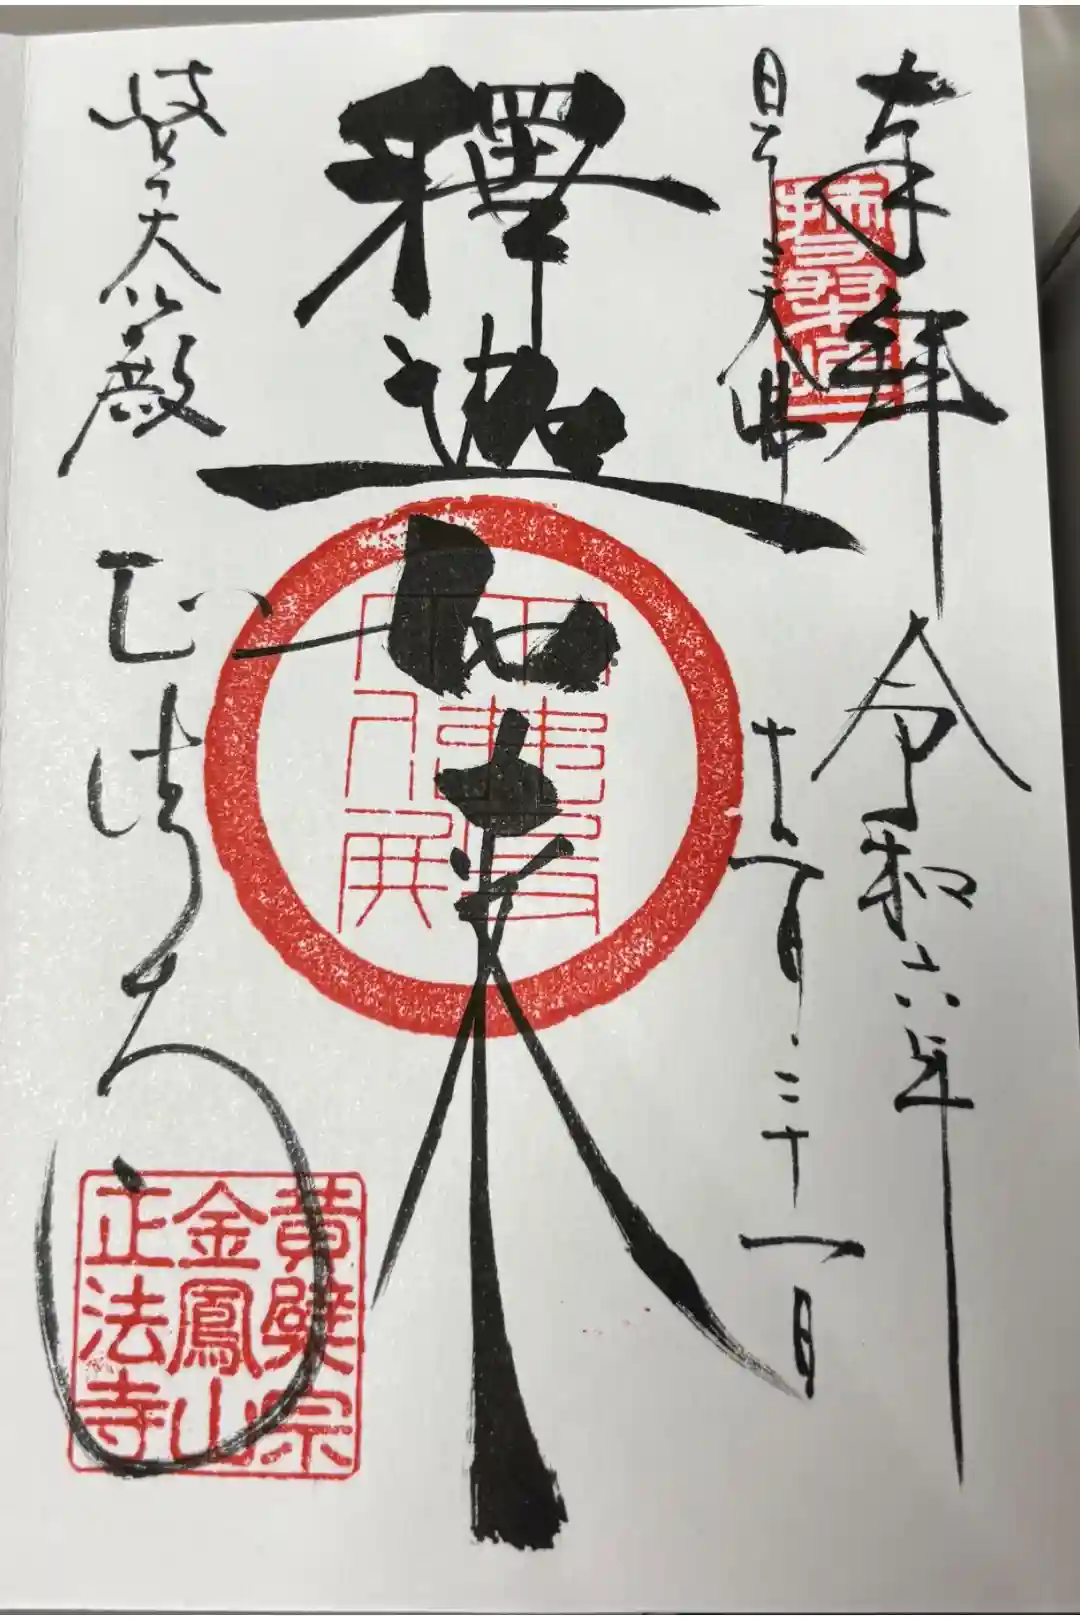 奉拝
令和六年
日本三大佛
十二月三十一日
釋迦如来
岐阜大仏殿
正法寺
黄檗宗
金鳳山
正法寺